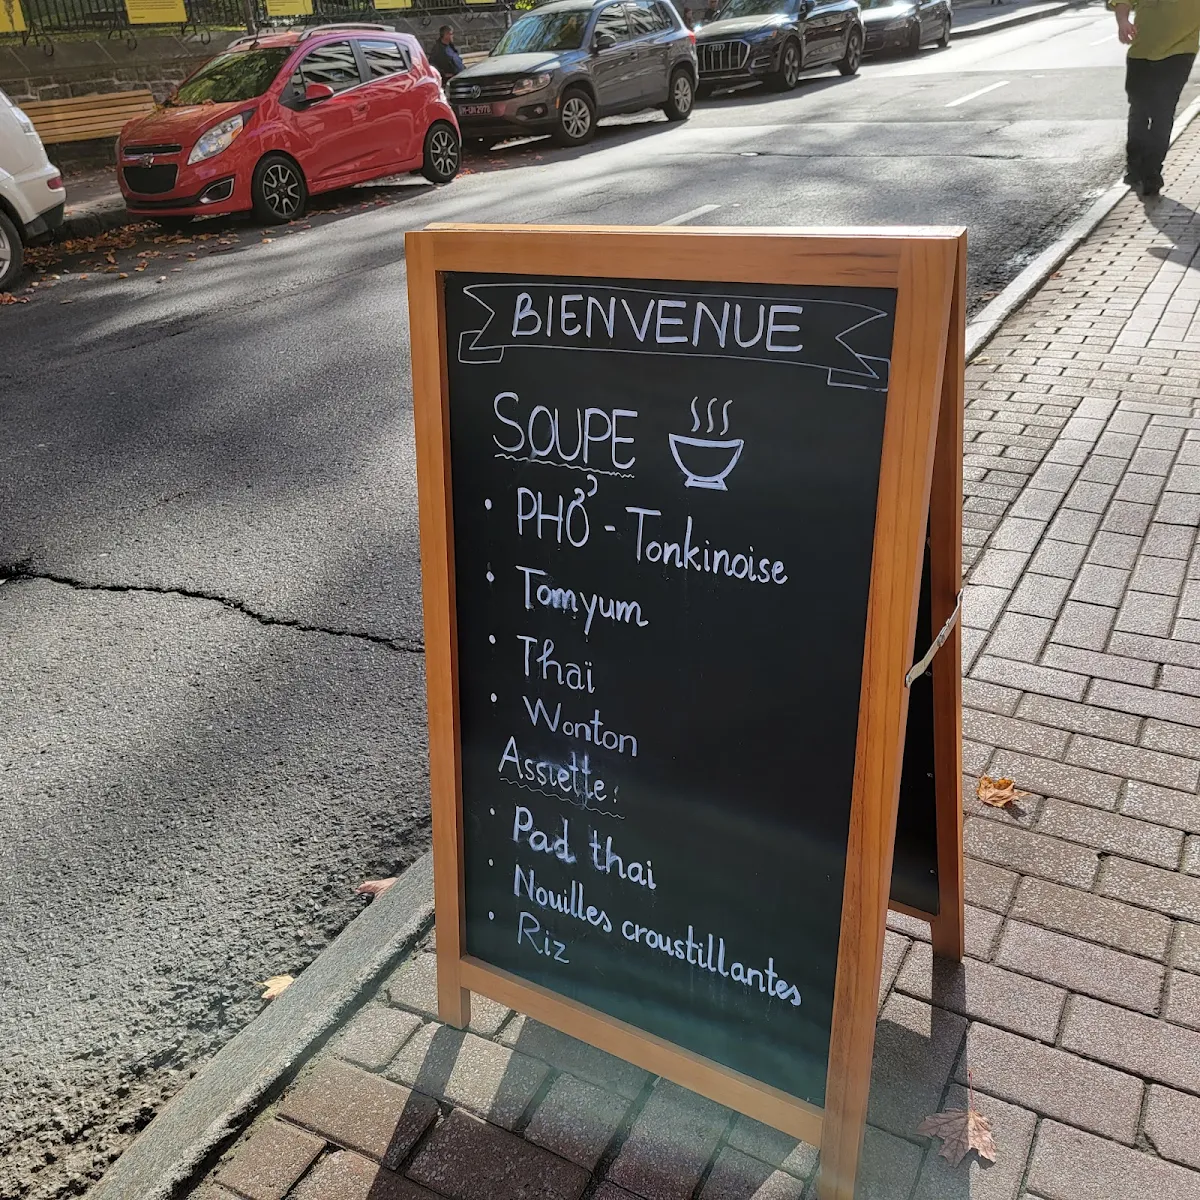 BIENVENUE
SOUPE
• PHỞ - Tonkinoise
• Tomyum
• Thaï
• Wonton
Assiette:
• Pad thai
• Nouilles croustillantes
• Riz